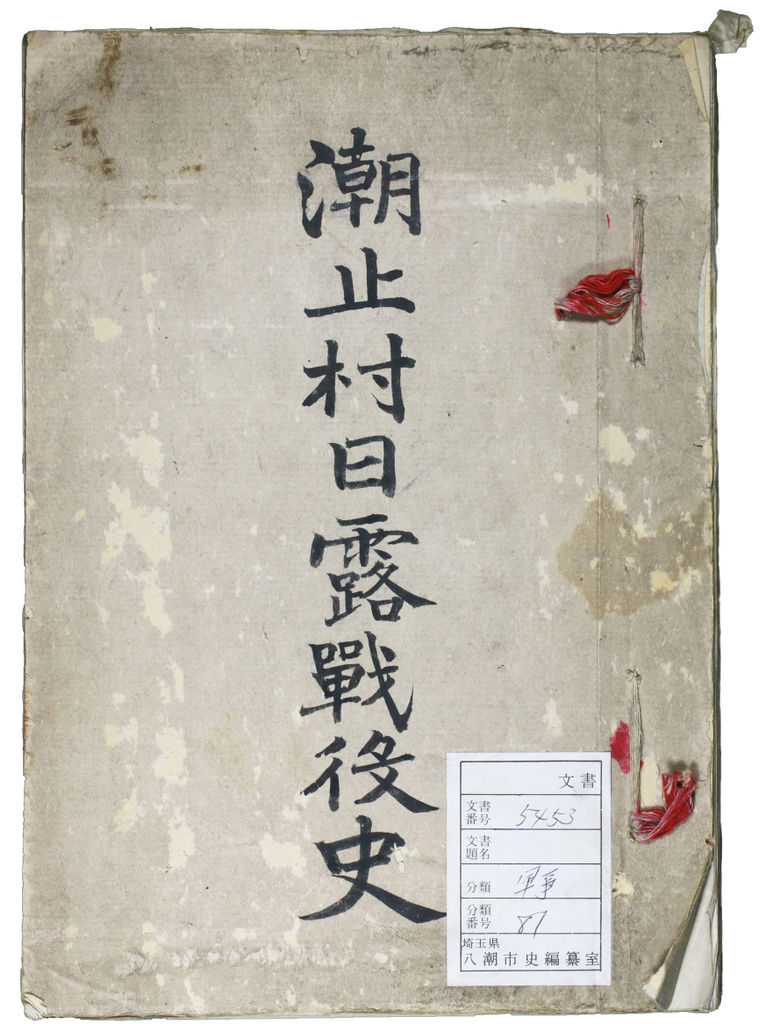 潮止村日露戰役史
文書
文書番号 5453
文書題名
分類 軍事
分類番号 81
埼玉県
八潮市史編纂室